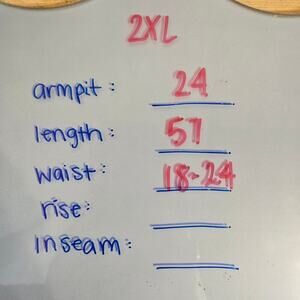 2XL
armpit: 24
length: 57
waist: 18-24
rise:
inseam: